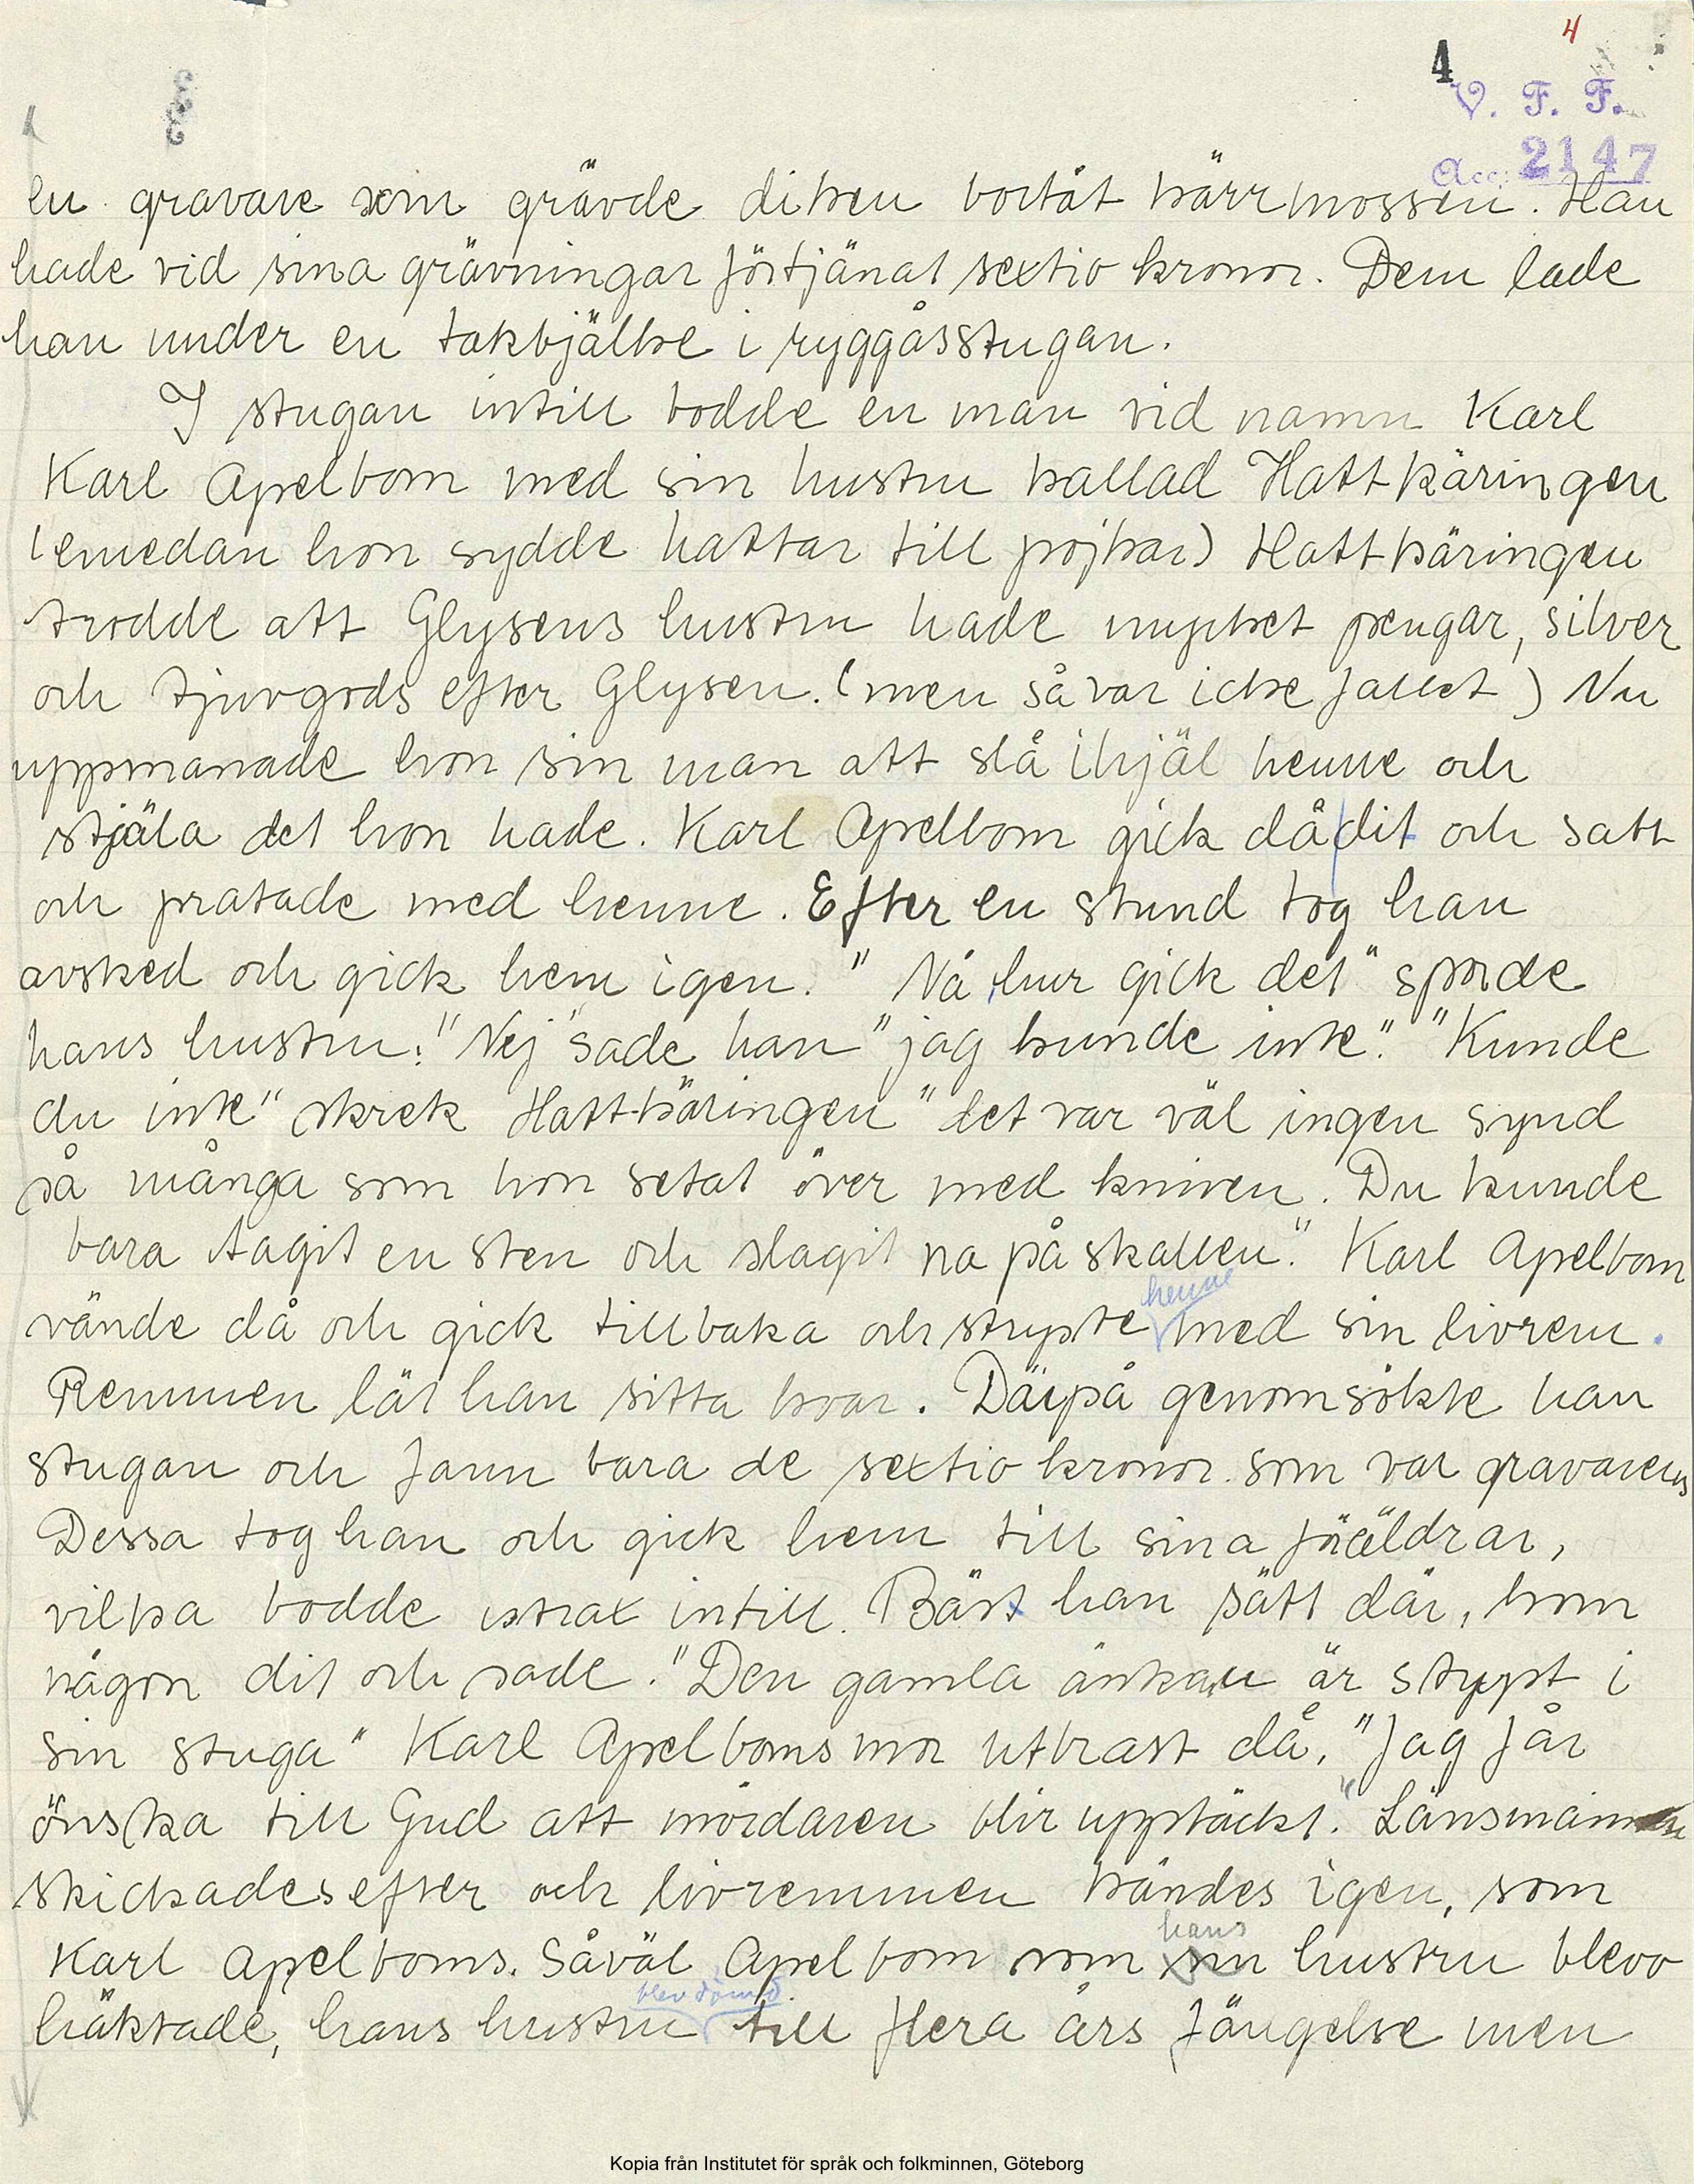 4
4
V. F. F.
Acc: 2147
en gravare som grävde diken bortåt kärrmossen. Han
hade vid sina grävningar förtjänat sextio kronor. Dem lade
han under en takbjälke i ryggåsstugan.
I stugan intill bodde en man vid namn Karl
Karl Apelbom med sin hustru kallad Hattkäringen
(emedan hon sydde hattar till pojkar) Hattkäringen
trodde att Glysens hustru hade mycket pengar, silver
och tjuvgods efter Glysen. (men så var icke fallet) Nu
uppmanade hon sin man att slå ihjäl henne och
stjäla det hon hade. Karl Apelbom gick då dit och satt
och pratade med henne. Efter en stund tog han
avsked och gick hem igen. "Nå, hur gick det" sporde
hans hustru. "Nej" sade han "jag kunde inte." "Kunde
du inte" skrek Hattkäringen "det var väl ingen synd
så många som hon setat över med kniven. Du kunde
bara tagit en sten och slagit na på skallen." Karl Apelbom
vände då och gick tillbaka och strypte henne med sin livrem.
Remmen lät han sitta kvar. Därpå genomsökte han
stugan och fann bara de sextio kronor som var gravarens
Dessa tog han och gick hem till sina föräldrar,
vilka bodde strax intill. Bäst han satt där, kom
någon dit och sade. "Den gamla änkan är strypt i
sin stuga" Karl Apelboms mor utbrast då, "Jag får
önska till Gud att mördaren blir upptäckt." Länsmannen
skickades efter och livremmen kändes igen, som
Karl Apelboms. Såväl Apelbom som hans hustru blevo
häktade, hans hustru blev dömd till flera års fängelse men
Kopia från Institutet för språk och folkminnen, Göteborg